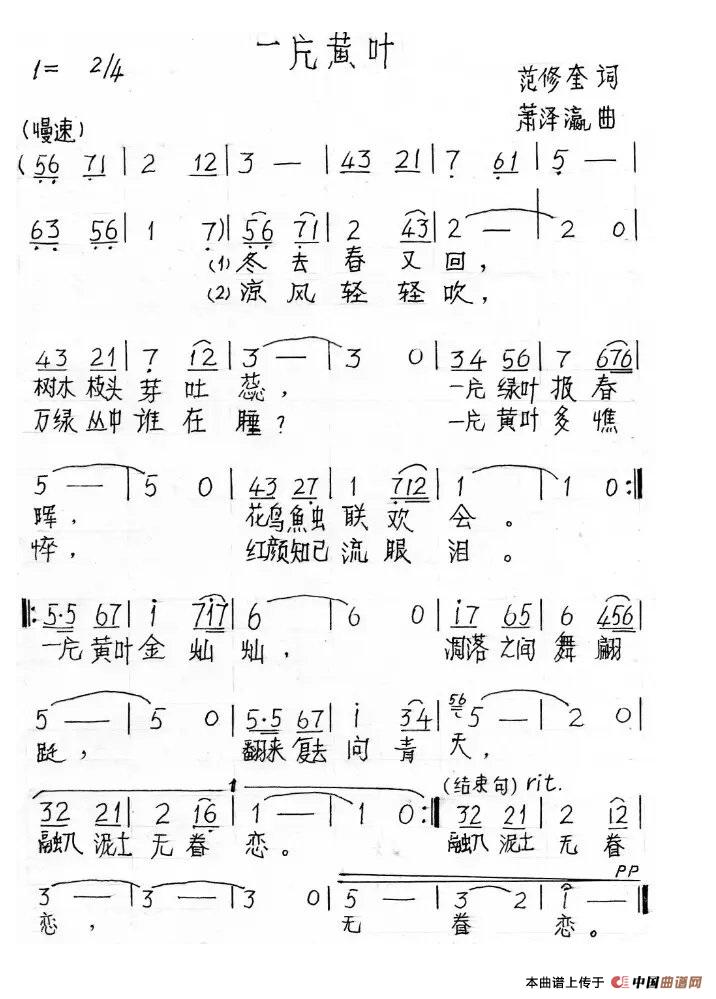 一片黄叶
1= 2/4
范修奎 词
萧泽瀛 曲
(慢速)
(56 71 | 2 12 | 3 — | 43 21 | 7 61 | 5 — |
63 56 | 1 7) | 56 71 | 2 43 | 2 — | 2 0
(1) 冬去春又回，
(2) 凉风轻轻吹，
43 21 | 7 12 | 3 — | 3 0 | 34 56 | 7 676 |
树木枝头芽吐蕊， 一片绿叶报春
万绿丛中谁在睡？ 一片黄叶多憔
5 — | 5 0 | 43 27 | 1 712 | 1 — | 1 0 :‖
晖， 花鸟魚虫联欢会。
悴， 红颜知己流眼泪。
‖: 5·5 67 | i 7i7 | 6 — | 6 0 | i7 65 | 6 456 |
一片黄叶金灿灿， 凋落之间舞翩
5 — | 5 0 | 5·5 67 | i 34 | 56 5 — | 2 0
跹， 翻来复去问青天，
1 (结束句) rit.
32 21 | 2 16 | 1 — | 1 0 :‖ 32 21 | 2 12 |
融入泥土无眷恋。 融入泥土无眷
PP
3 — | 3 — | 3 0 | 5 — | 3 2 | 1 — ‖
恋， 无眷恋。
本曲谱上传于 中国曲谱网